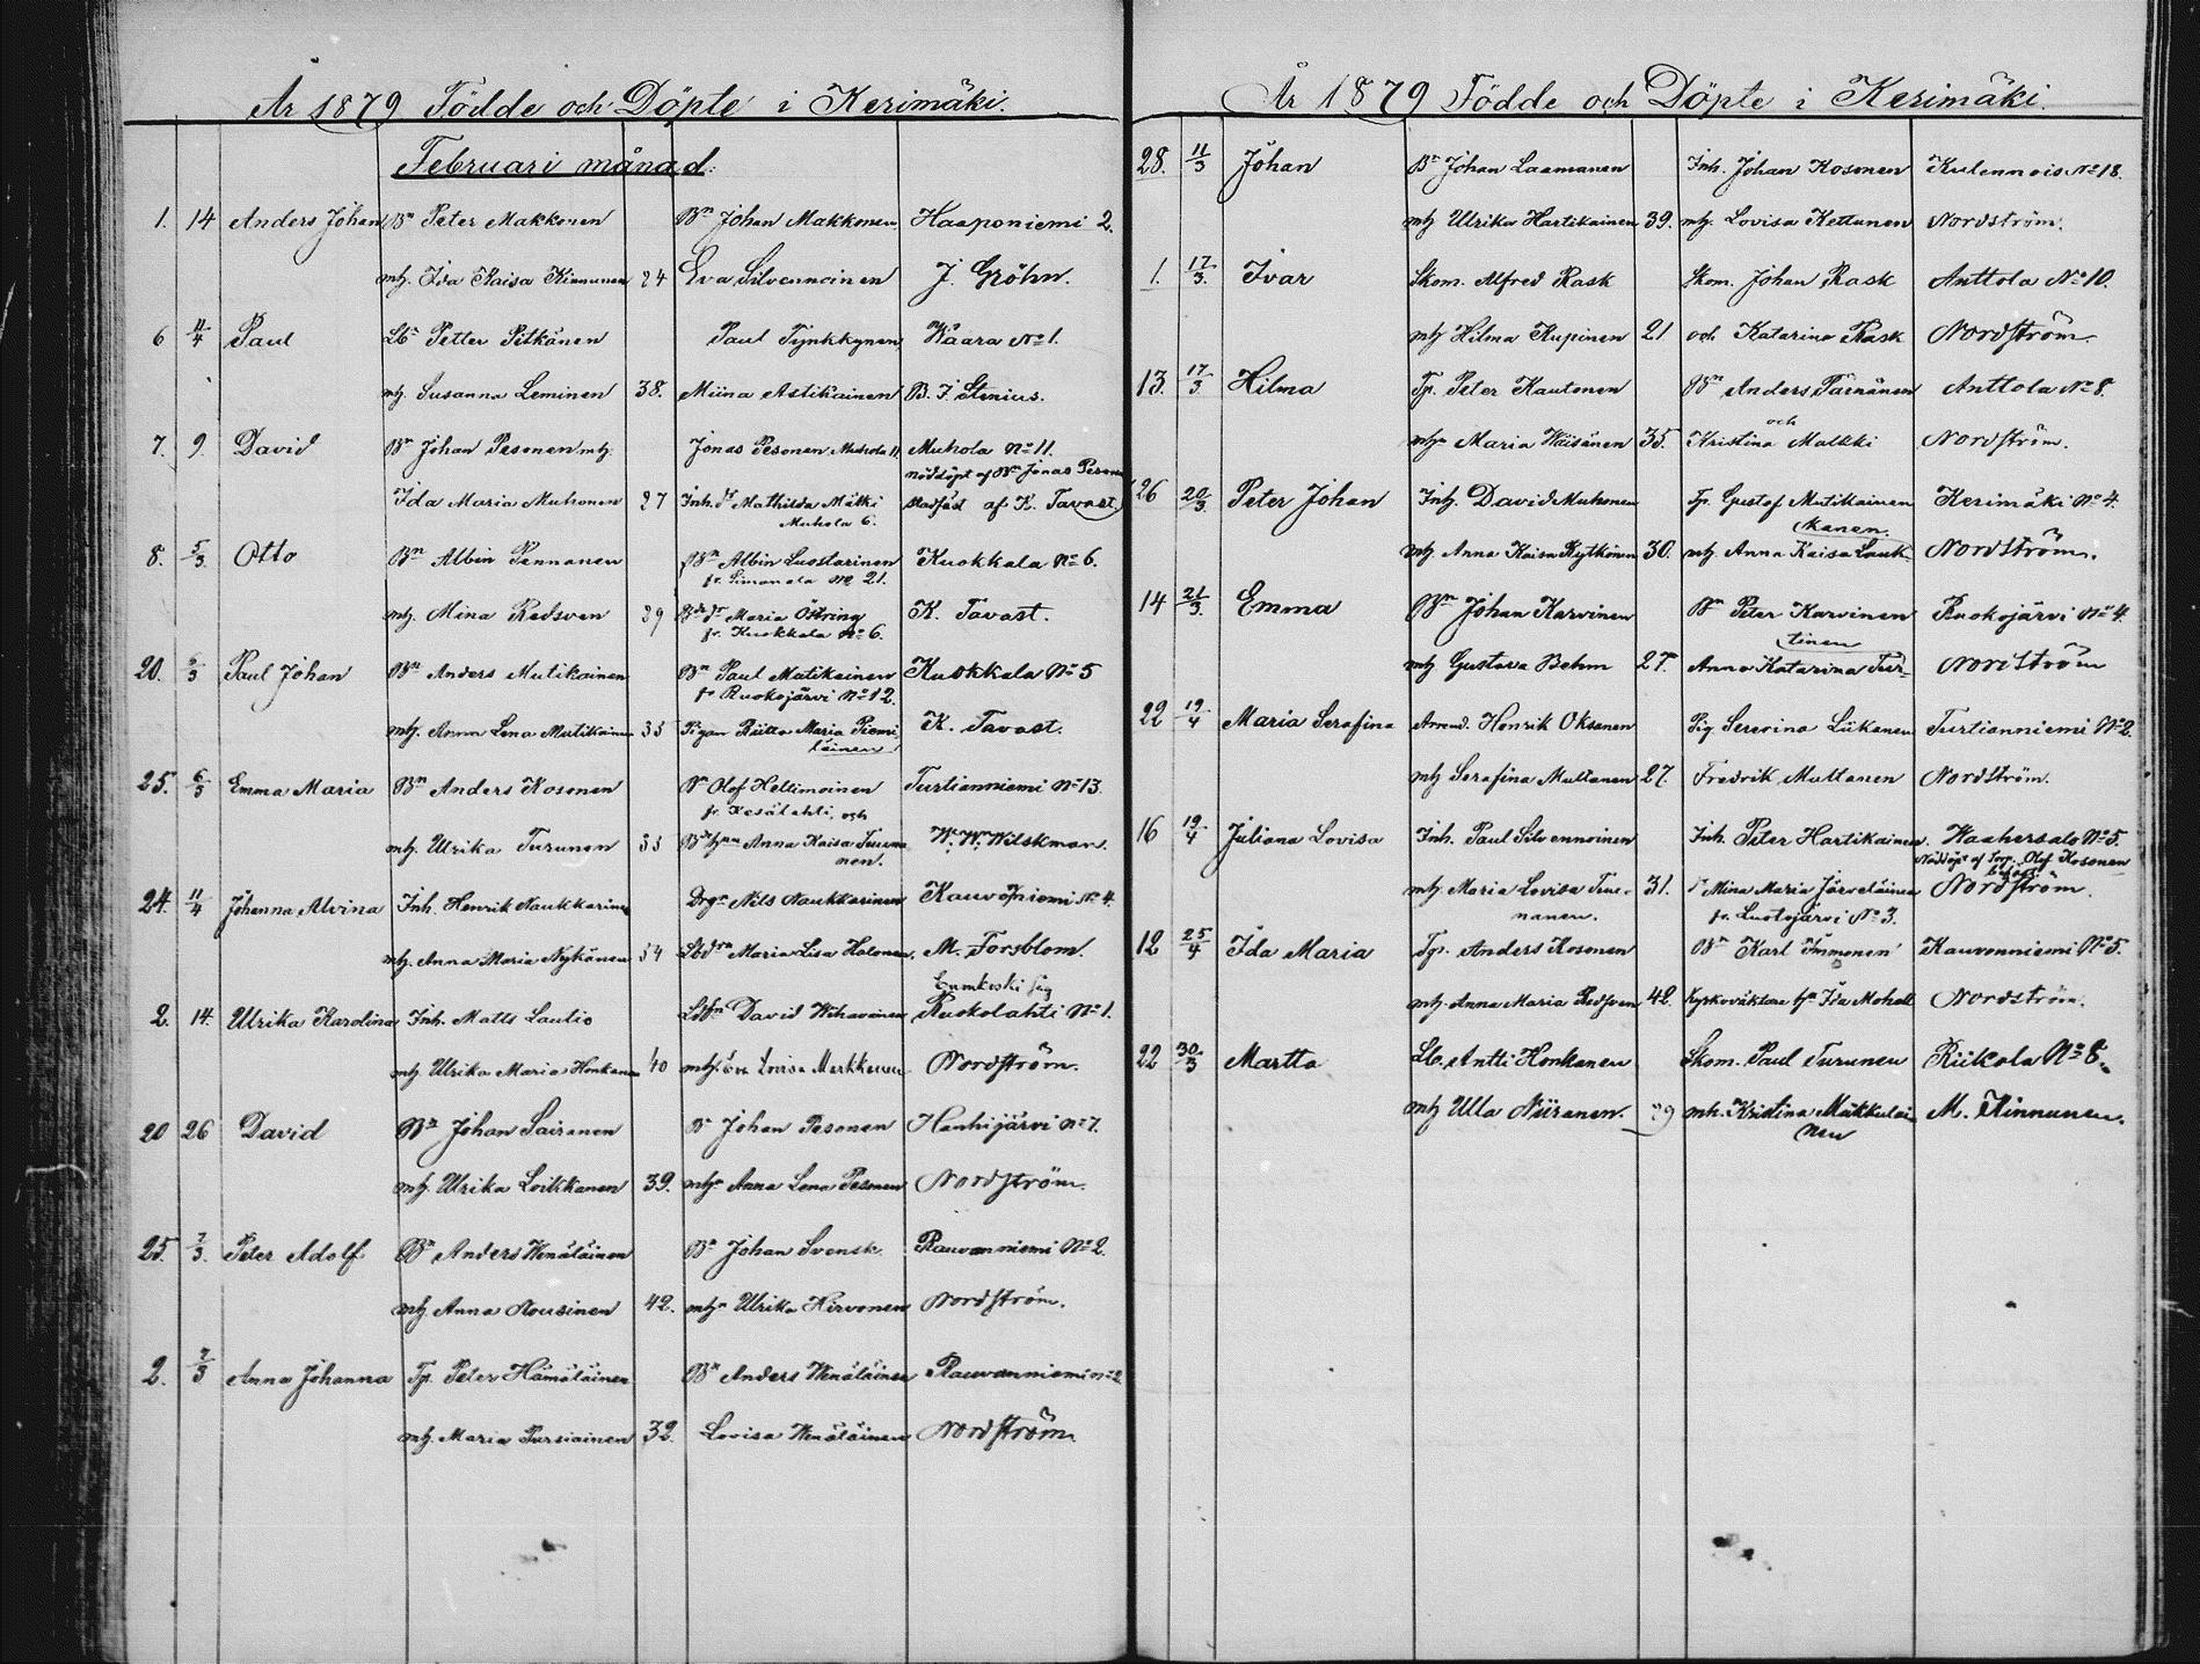 År 1879 Födde och Döpte i Kerimäki.
Februari månad.
1. 14 Anders Johan Bn Peter Makkonen Bn Johan Makkonen Haaponiemi 2.
mh. Ida Kaisa Kinnunen 24 Eva Silvennoinen J. Gröhn.
6 11/4 Paul Lb Petter Pitkänen Paul Tynkkynen Waara No 1.
mh. Susanna Leminen 38. Miina Astikainen B. J. Stenius.
7. 9. David Bn Johan Pesonen mh. Jonas Pesonen Muhola 11. Muhola No 11.
nöddöpt af Bn Jonas Pesonen
Ida Maria Muhonen 27 Inh. dr Mathilda Mälki stadfäst af K. Tavast.
Muhola 6.
8. 5/3 Otto Bn Albin Pennanen Bn Albin Luostarinen Kuokkala No 6.
fr. Simanala No 21.
mh. Mina Redsven 29 Bde dr Maria Östring K. Tavast.
fr. Kuokkala No 6.
20. 6/3 Paul Johan Bn Anders Mutikainen Bn Paul Mutikainen Kuokkala No 5
fr Ruokojärvi No 12.
mh. Anna Lena Mutikainen 33 Pigan Riitta Maria Piemi- K. Tavast.
läinen
25. 6/3 Emma Maria Bn Anders Kosonen Bn Olof Heltimoinen Turtianniemi No 13.
fr. Kesälahti, och
mh. Ulrika Turunen 33 Anna Kaisa W. W. Wilskman.
nen.
24. 11/4 Johanna Alvina Inh. Henrik Naukkarinen Drgn Nils Naukkarinen Kauvoniemi No 4.
mh. Anna Maria Nykänen 34 Maria Lisa Halonen. M. Forsblom.
2. 14. Ulrika Karolina Inh. Matts Lautio David Wihavainen Ruokolahti No 1.
mh Ulrika Maria Honkanen 40 mh. Eva Lovisa Nordström.
20 26 David Bn Johan Sairanen Bn Johan Pesonen Hanhijärvi No 7.
mh. Ulrika Loikkanen 39. mh. Anna Lena Pesonen Nordström.
25. 7/3. Peter Adolf Bn Anders Wenäläinen Bn Johan Svensk Rauvanniemi No 2.
mh Anna Nousinen 42. mh. Ulrika Hirvonen Nordström.
2. 7/3 Anna Johanna Tp. Peter Hämäläinen Bn Anders Wenäläinen Rauvanniemi No 2
mh. Maria Pursiainen 32. Lovisa Wenäläinen Nordström.
År 1879 Födde och Döpte i Kerimäki.
28. 11/3 Johan Bn Johan Laamanen Inh. Johan Kosonen Kulennois No 18.
mh Ulrika Hartikainen 39. mh. Lovisa Kettunen Nordström.
1. 17/3. Ivar Skom. Alfred Rask Skom. Johan Rask Anttola No 10.
mh Hilma Kupinen 21 och Katarina Rask Nordström.
13. 17/3 Hilma Tp. Peter Kautonen Bn Anders Parnänen Anttola No 8.
och
mh. Maria Wäisänen 35. Kristina Malkki Nordström.
26 20/3. Peter Johan Inh. David Muhonen Tp. Gustaf Mutikainen Kerimäki No 4.
kanen.
mh Anna Kaisa Kytkönen 30. mh. Anna Kaisa Lauk- Nordström.
14 21/3. Emma Bn Johan Karvinen Bn Peter Karvinen Ruokojärvi No 4.
tinen
mh Gustava Behm 27. Anna Katarina Tur- Nordström
22 19/4 Maria Serafina Arrend. Henrik Oksanen Pig Serevina Liikanen Turtianniemi No 2.
mh Serafina Multanen 27. Fredrik Multanen Nordström.
16 19/4 Juliana Lovisa Inh. Paul Silvennoinen Inh. Peter Hartikainen. Haahersalo No 5.
Nöddöpt af Olof Kosonen
mh. Maria Lovisa Tene- 31. Mina Maria Järveläinen Nordström.
nanen. fr. Luotojärvi No 3.
12 25/4 Ida Maria Tp. Anders Kosonen Bn Karl Immonen Kauvonniemi No 5.
mh. Anna Maria Redsven 42. Kyrkoväktare Ida Mohell Nordström.
22 30/3 Martta Lb. Antti Honkanen Skom. Paul Turunen Riikola No 8.
mh Ulla Niiranen. 29 mh. Kristina Mäkkuläi- M. Kinnunen.
nen